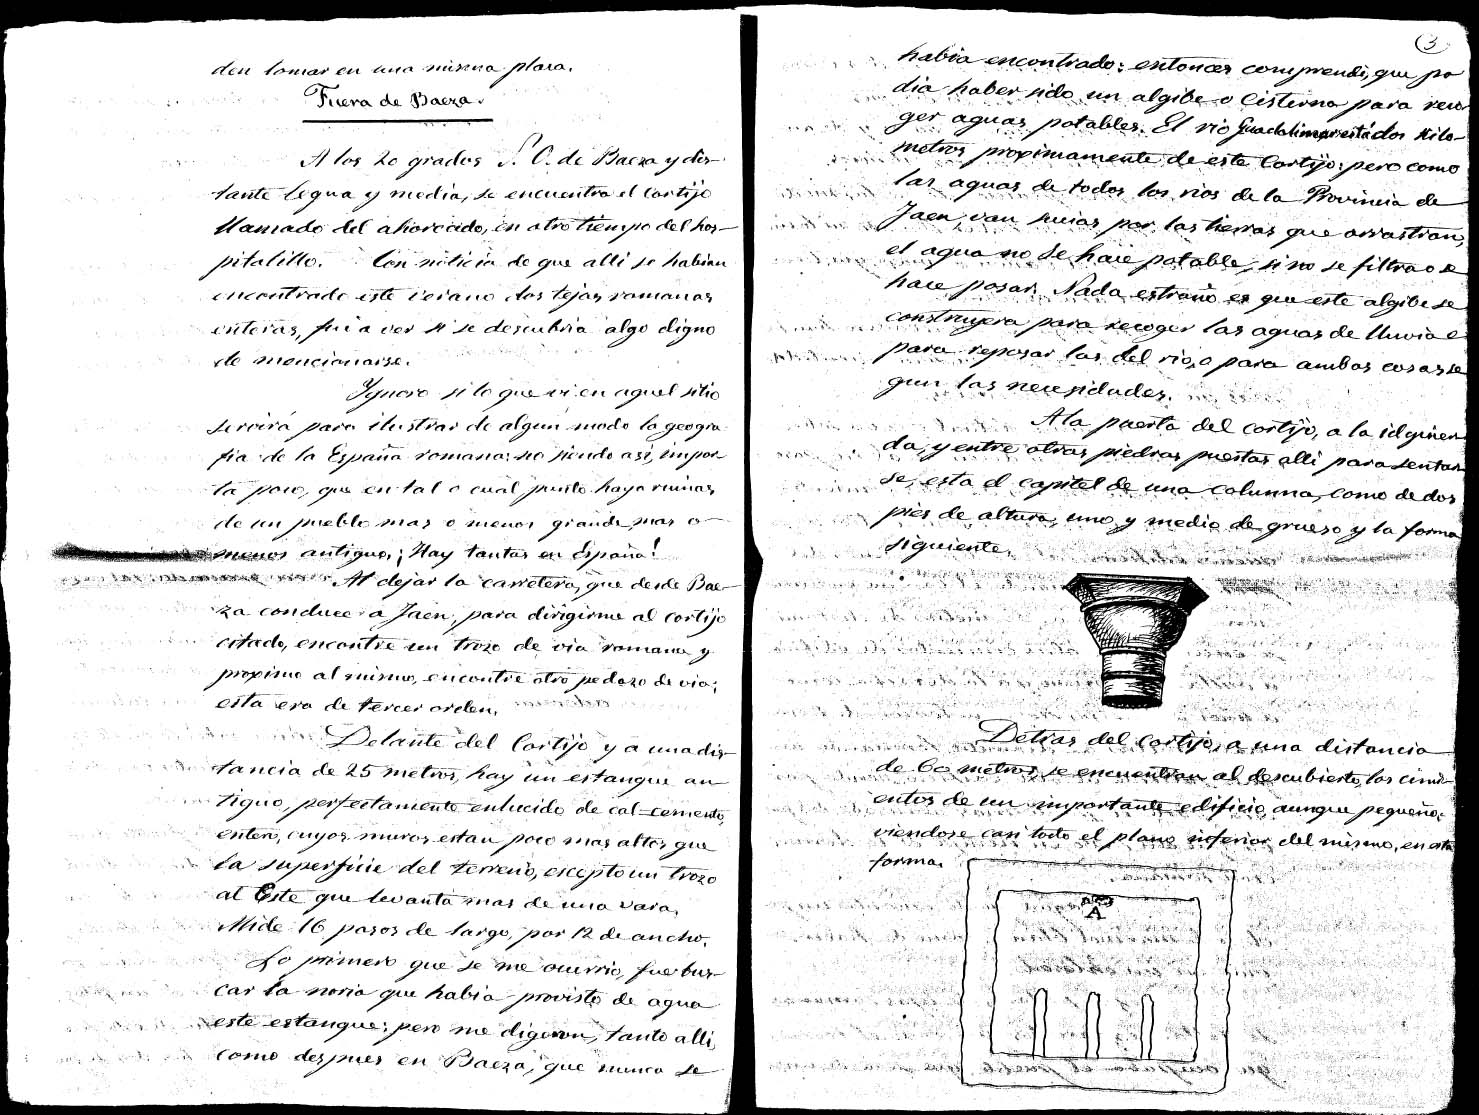 den tomar en una misma plaza.
Fuera de Baeza.
A los 20 grados S. O. de Baeza y dis-
tante legua y media, se encuentra el cortijo
llamado del ahorcado, en otro tiempo del hos-
pitalillo. Con noticia de que alli se habian
encontrado este verano dos tejas romanas
enteras, fui a ver si se descubria algo digno
de mencionarse.
Ygnoro si lo que vi en aquel sitio
servirá para ilustrar de algun modo la geogra-
fia de la España romana: no siendo asi, impor-
ta poco, que en tal o cual punto haya ruinas
de un pueblo mas o menos grande, mas o
menos antiguo, ¡Hay tantas en España!
Al dejar la carretera, que desde Bae-
za conduce a Jaen, para dirigirme al cortijo
citado, encontré un trozo de via romana y
proximo al mismo, encontré otro pedazo de via;
esta era de tercer orden.
Delante del Cortijo y a una dis-
tancia de 25 metros, hay un estanque an
tiguo, perfectamente enlucido de cal-cemento,
entero, cuyos muros estan poco mas altos que
la superficie del terreno, escepto un trozo
al Este que levanta mas de una vara.
Mide 16 pasos de largo, por 12 de ancho.
Lo primero que se me ocurrio, fue bus-
car la noria que habia provisto de agua
este estanque; pero me digeron, tanto alli,
como despues en Baeza, que nunca se
3
habia encontrado: entonces comprendi, que po
dia haber sido un algibe o Cisterna para reco-
ger aguas potables. El rio Guadalimar está dos kilo-
metros proximamente de este Cortijo: pero como
las aguas de todos los rios de la Provincia de
Jaen, van sucias por las tierras que arrastran,
el agua no se hace potable, si no se filtra o se
hace posar. Nada estraño es que este algibe se
construyera para recoger las aguas de lluvia o
para reposar las del rio, o para ambas cosas se
gun las necesidades.
A la puerta del cortijo, a la idquier-
da, y entre otras piedras puestas alli para sentar-
se, esta el capitel de una columna, como de dos
pies de altura, uno y medio de grueso y la forma
siguiente.
Detras del Cortijo, a una distancia
de 60 metros se encuentran al descubierto, los cimi-
entos de un importante edificio, aunque pequeño:
viendose casi todo el plano inferior del mismo, en esta
forma.
A